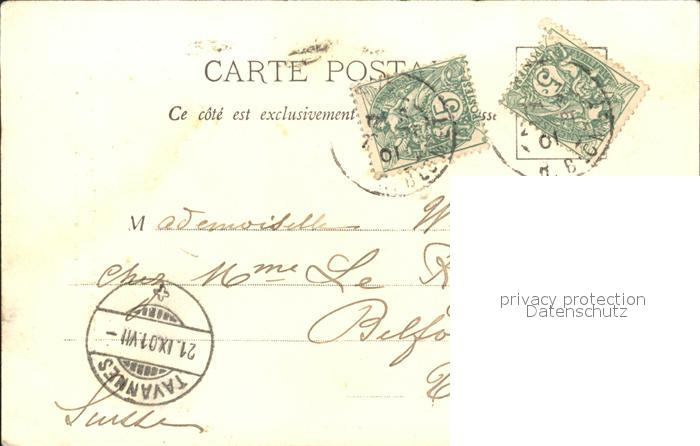 CARTE POSTA
Ce côté est exclusivement sse
5
5
01
01
Mademoiselle W
Chez Mme Le R
Belfo
TAVANNES
21.IX.01.VII-
Suisse
privacy protection
Datenschutz